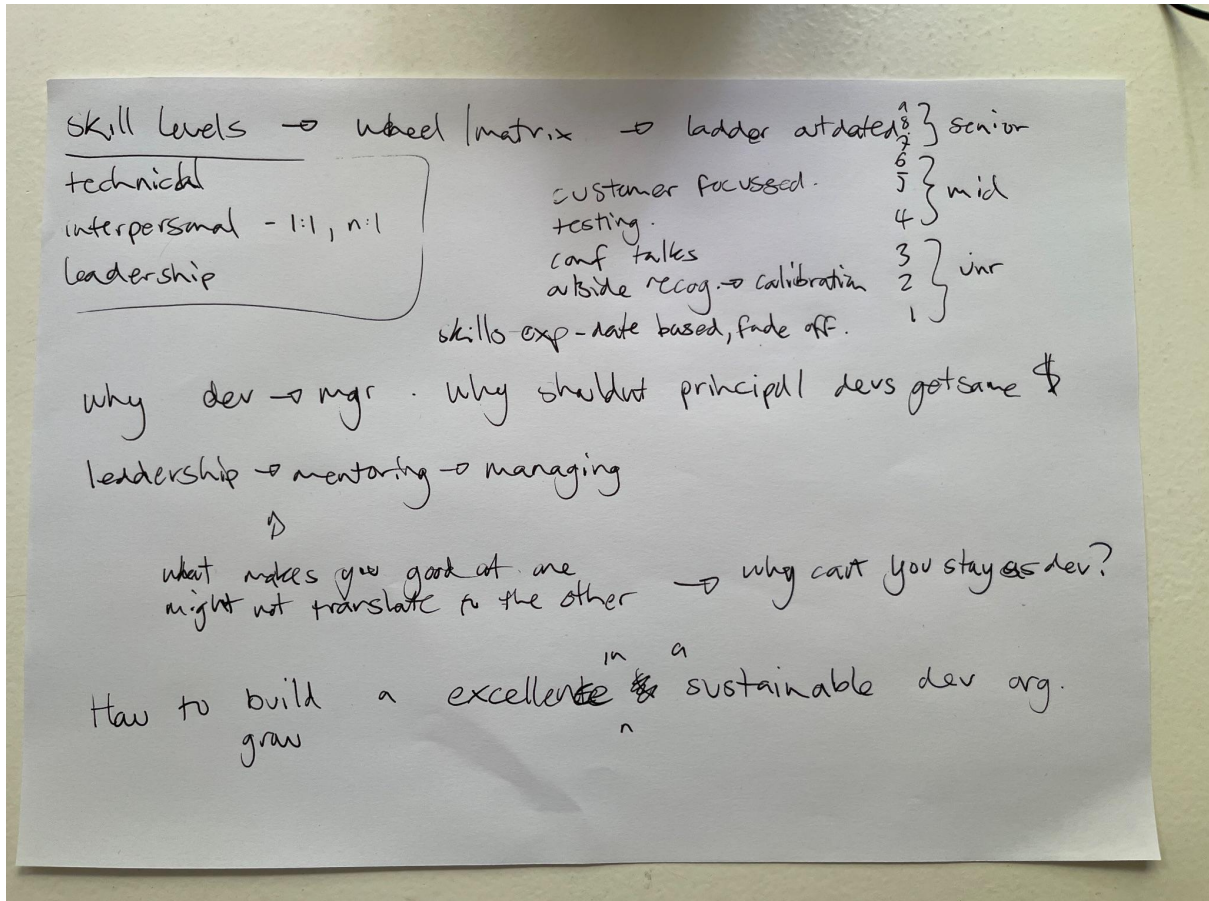 skill levels → wheel / matrix → ladder outdated 9 8 7 } senior
technical
interpersonal - 1:1, n:1
leadership
6 5 4 } mid
customer focussed.
testing.
conf talks
outside recog. → calibration
3 2 1 } jnr
skills-exp-date based, fade off.
why dev → mgr. why shouldnt principal devs get same $
leadership → mentoring → managing
what makes you good at one
might not translate to the other → why cant you stay as dev?
in a
How to build a excellence sustainable dev org.
grow n